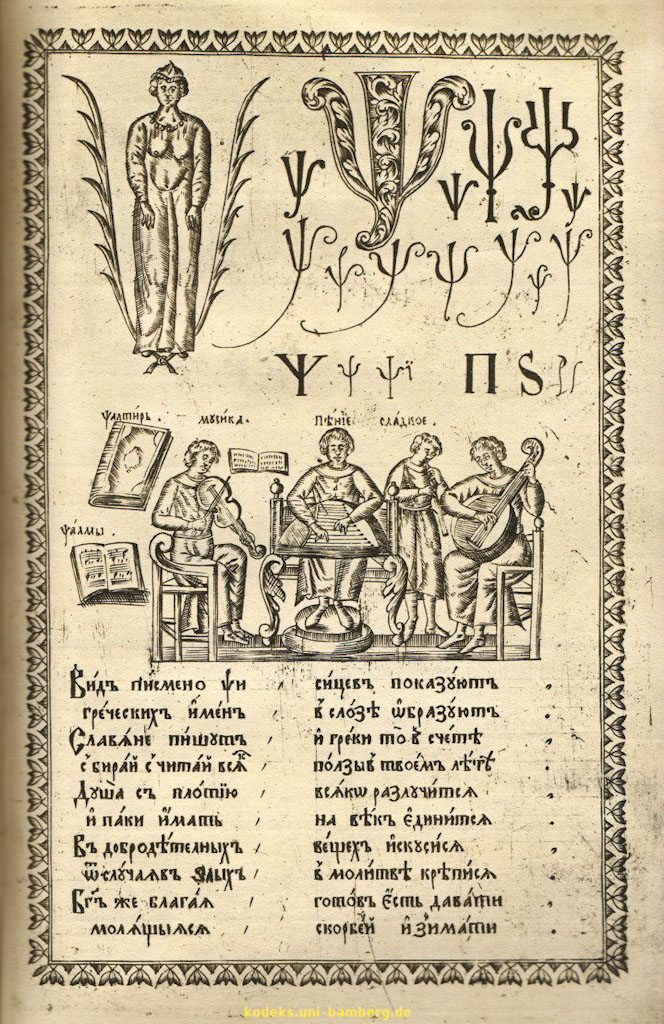 Ѱ Ѱ ѱ ѱ П Ѕ
Ѱалтирь . мусика . Пѣнїе сладкое .
Ѱалмы .
Видъ писмено ѱи сицевъ показуютъ
греческихъ именъ в слозѣ ѡбразуютъ
Славѧне пишутъ и греки то в счетѣ
сбирай считай всѧ ползы твоемъ
Душа съ плотїю всѧкѡ разлучитсѧ
и паки имать на вѣкъ единитсѧ
Въ добродѣтелныхъ вещехъ искусисѧ
ѿ случаявъ злыхъ в молитвѣ крѣписѧ
Бг҃ъ же благаѧ готовъ есть давати
молѧщыѧсѧ скорбей изимати
kodeks.uni-bamberg.de